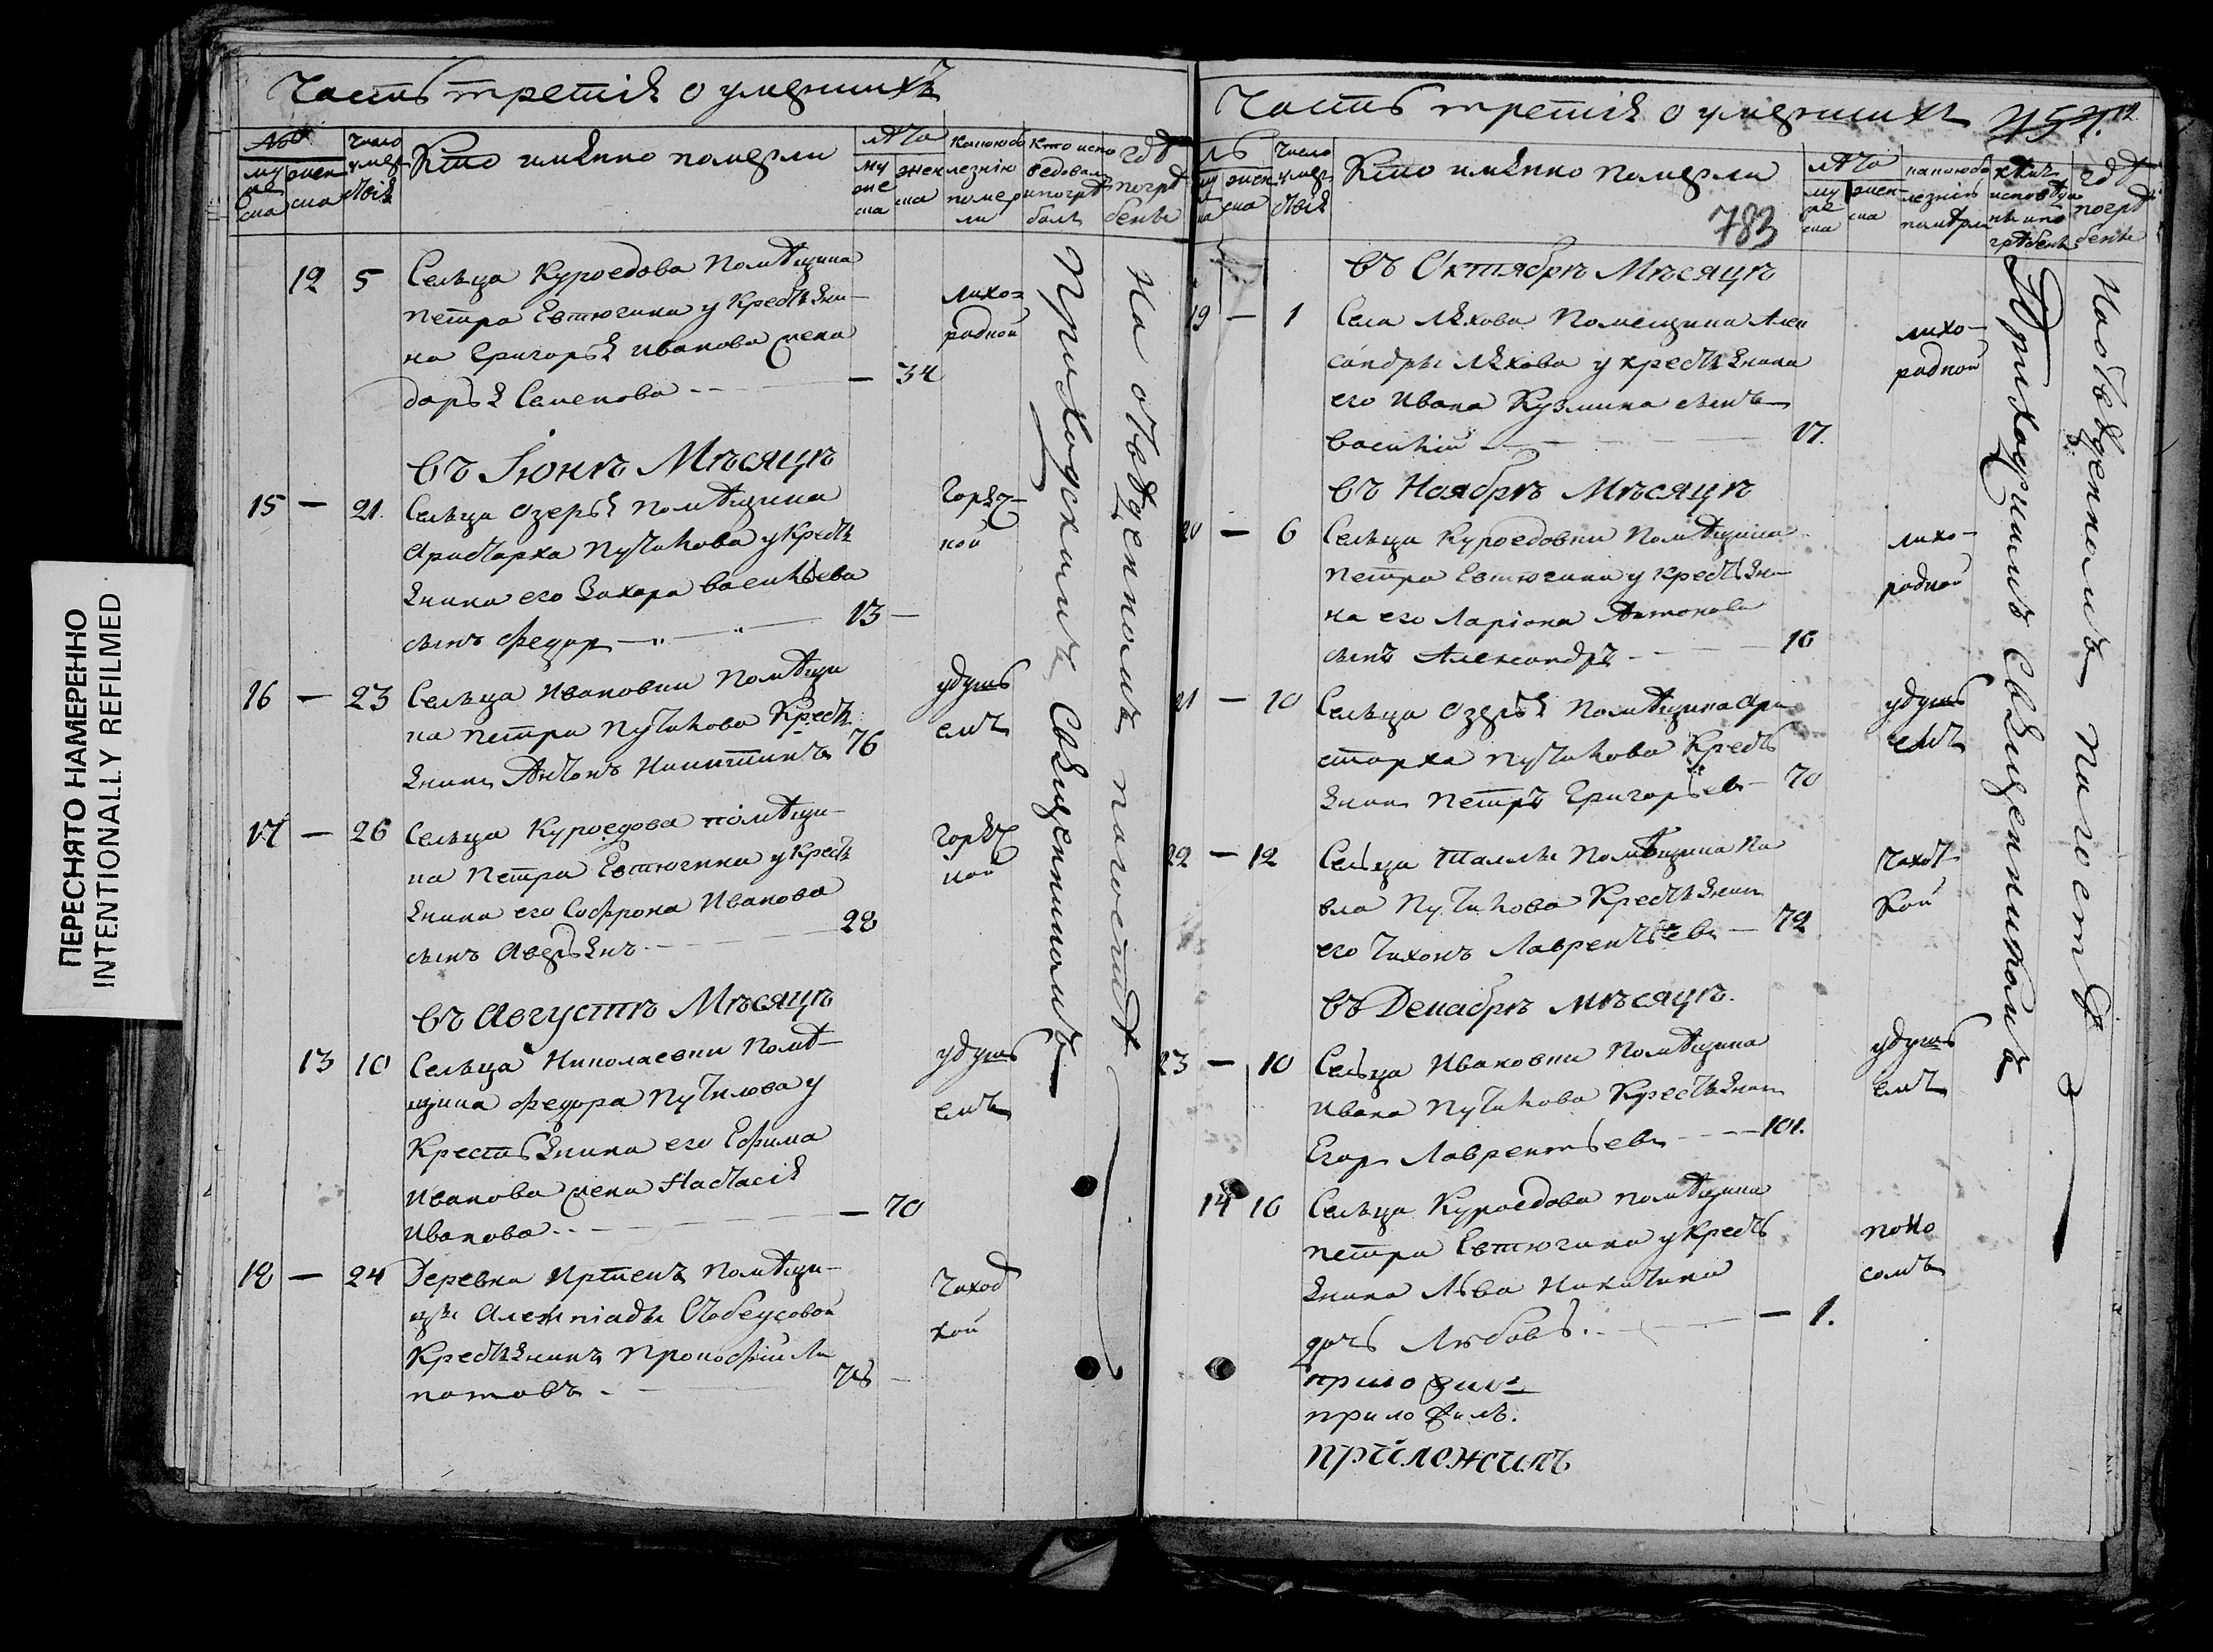 ПЕРЕСНЯТО НАМЕРЕННО
INTENTIONALLY REFILMED
Часть третія о умершихъ
Число умер
Кто имянно померли
лѣта
му же ска
жен ска
какою бо
лезнію
помер
ли
кто испо
ведовал
и погрѣ
балъ
гдѣ
погрѣ
бены
12 5 Сельца Куроедова Помѣщика
Петра Евтюгина у Крестьяни-
на Григорья Иванова жена
Дарья Семенова — 34
лихо-
радкой
въ Іюнѣ Мѣсяцѣ
15 — 21. Сельца Озерья Помѣщика
Аристарха Путилова у Кресть
янина его Захара Васильева
сынъ Федор 13 —
Горяч-
кой
16 — 23 Сельца Ивановки Помѣщи
ка Петра Путилова Кресть
янин Антонъ Никитинъ 76
удушь
емъ
17 — 26 Сельца Куроедова помѣщи-
ка Петра Евтюгина у Кресть
янина его Софрона Иванова
сынъ Аверьянъ 28
Горяч
кой
въ Августѣ Мѣсяцѣ
13 10 Сельца Николаевки Помѣ-
щика Федора Путилова у
Крестьянина его Ефима
Иванова жена Настасія
Иванова — 70
удушь
емъ
18 — 24 Деревни Помѣщи-
цы
Крестьянинъ Прокофій По
таповъ
Чахот
кой
Приходскимъ Священникомъ
На отведенномъ погостѣ
Часть третія о умершихъ
783
Число умер
Кто имянно померли
лѣта
му же ска
жен ска
какою бо
лезнію
померли
кѣмъ
исповѣда
ны и по
грѣбены
гдѣ
погрѣ
бены
въ Октябрѣ Мѣсяцѣ
19 — 1 Села Ляхова Помещика Алек
сандры Ляхова у крестьянина
его Ивана Кузмина сынъ
Василій 17.
лихо-
радкой
въ Ноябрѣ Мѣсяцѣ
20 — 6 Сельца Куроедовки Помѣщика
Петра Евтюгина у крестьяни
на его Ларіона Антонова
сынъ Александръ 16
лихо-
радкой
21 — 10 Сельца Озерья Помѣщика Ари
старха Путилова Кресть
янин Петръ Григорьев — 70
удушь
емъ
22 — 12 Сельца Помѣщика Па
вла Путилова Крестьянин
его Тихонъ Лаврентьев — 72
Чахот
кой
въ Декабрѣ мѣсяцѣ.
23 — 10 Сельца Ивановки Помѣщика
Ивана Путилова Крестьянин
Егор Лаврентьев 101.
удушь
емъ
14 16 Сельца Куроедова помѣщика
Петра Евтюгина у Кресть
янина Льва Никитина
дочь Любовь. — 1.
поно
сомъ
приложилъ
приложилъ.
приложилъ
Приходскимъ Священникомъ
На отведенномъ погостѣ